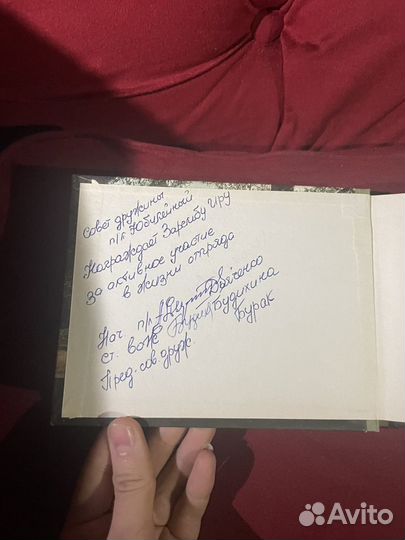 Совет дружины
п/л Юбилейный
Награждает Зарембу Иру
за активное участие
в жизни отряда
Нач. п/л Дьяченко
ст. вож. Будихина
Пред. сов. друж. Бурак
Avito